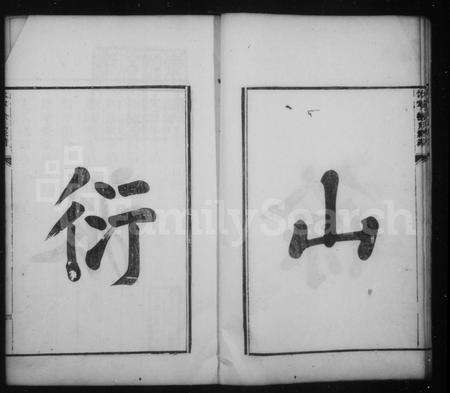 山
衍
FamilySearch